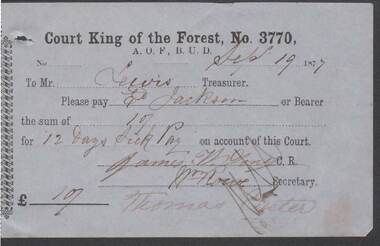 Court King of the Forest, No. 3770,
A. O. F., B. U. D.
No Sep 19 1877
To Mr. Lewis Treasurer.
Please pay Ed Jackson or Bearer
the sum of 19/
for 12 Days Sick Pay on account of this Court.
James C. R.
Wm Rowe Secretary.
£ 19/ Thomas